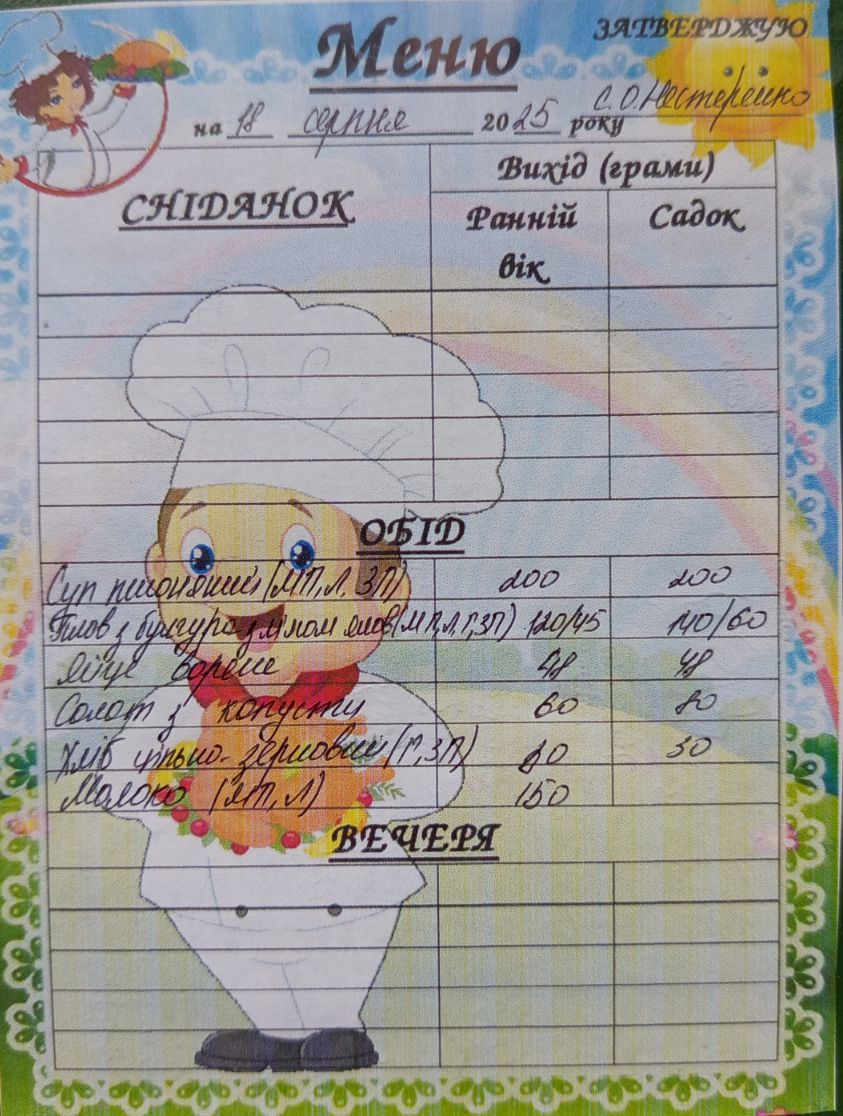 Меню
ЗАТВЕРДЖУЮ
С.О.Нестеренко
на 18 серпня 2025 року
СНІДАНОК
Вихід (грами)
Ранній вік
Садок
ОБІД
Суп пшоняний (МП, Л, ЗП) 200 200
Плов з булгура з м'ясом ялов (МП, Л, Г, ЗП) 120/45 140/60
Яйце варене 48 48
Салат з капусти 60 80
Хліб цільно-зерновий (Г, ЗП) 30
Молоко (МП, Л) 150
ВЕЧЕРЯ